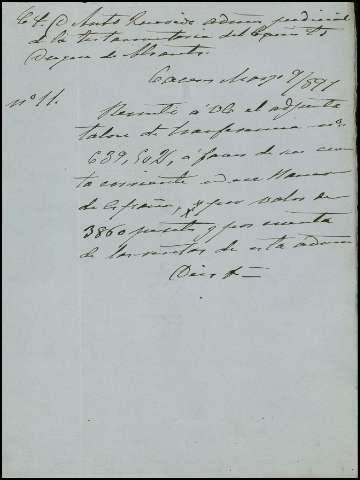 Sr. D. Anto Quevedo admor judicial
de la testamentaria del Exmo Sr
Duque de Abrantes.
Caceres Mayo 9/891
nº 11.
Remito á Vd el adjunto
talon de transferencia nº
639,502, á favor de su cuen
ta corriente en ese Banco
de España, por valor de
3860 pesetas y por cuenta
de las rentas de esta admon
Dios &